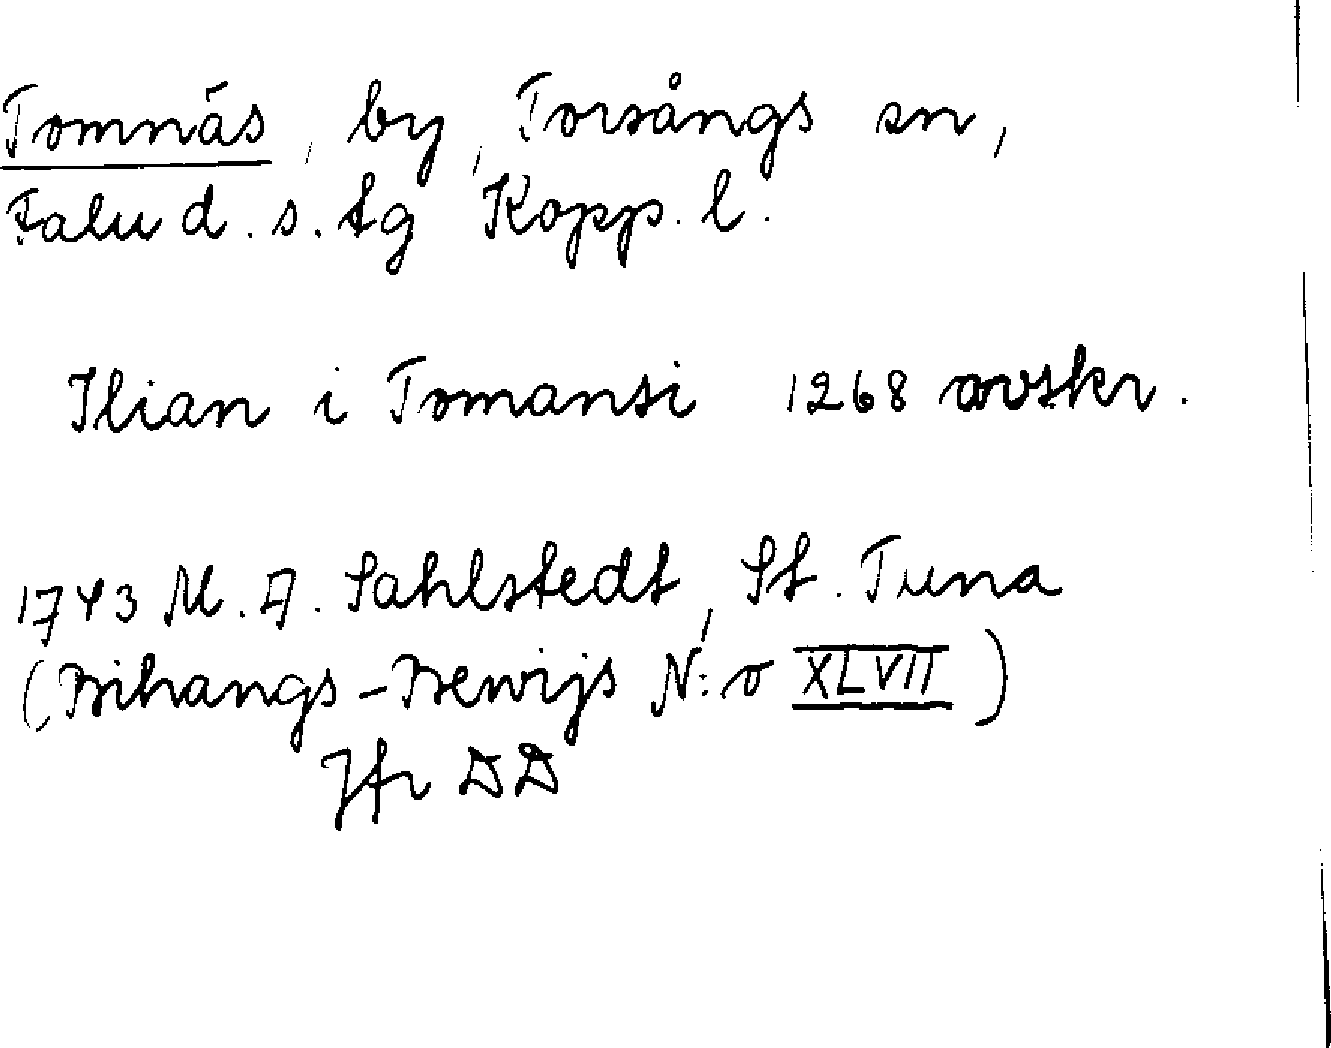 Tomnäs, by, Torsångs sn,
Falu d. s. tg Kopp. l.
Ilian i Tomansi 1268 avskr.
1743 M. A. Sahlstedt, St. Tuna
(Bihangs-Bewijs N:o XLVII)
Jfr DD